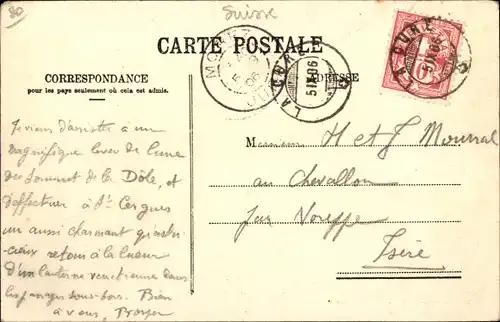 80
Suisse
CARTE POSTALE
CORRESPONDANCE
pour les pays seulement où cela est admis.
ADRESSE
MOREZ
LA CURE
5 IX 06
LA CURE
5 IX 06
10
Je viens d'assister à un
magnifique lever de lune
du sommet de la Dôle, et
d'effectuer à St Cergues
un aussi charmant
retour à la lueur
d'un lanterne vénitienne dans
les sous-bois. Bien
à vous,
M
H et J Mourral
au Chevallon
par Voreppe
Isère